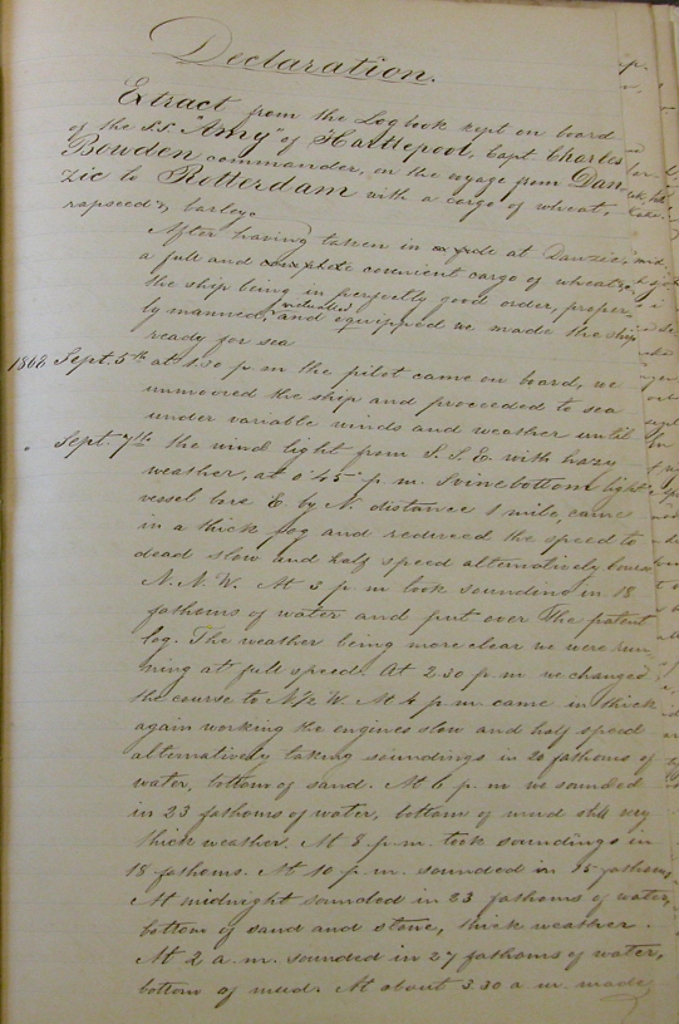 Declaration.
Extract from the Logbook kept on board
of the S.S. "Amy" of Hartlepool, Capt. Charles
Bowden commander, on the voyage from Dan-
zic to Rotterdam with a cargo of wheat,
rapseed & barley.
After having taken in at Danzic,
a full and convenient cargo of wheat &c
the ship being in perfectly good order, proper-
ly manned, victualled and equipped we made the ship
ready for sea
1868 Sept. 5th at 1.30 p.m the pilot came on board, we
unmoored the ship and proceeded to sea
under variable winds and weather until
" Sept. 7th the wind light from S.S.E. with hazy
weather, at 0.45 p.m. Svinebottom light
vessel bore E. by N. distance 1 mile, came
in a thick fog and reduced the speed to
dead slow and half speed alternatively. Course
N.N.W. At 3 p.m took sounding in 18
fathoms of water and put over the patent
log. The weather being more clear we were run-
ning at full speed. At 2.30 p.m we changed
the course to N½W. At 4 p.m. came in thick
again working the engines slow and half speed
alternatively taking soundings in 20 fathoms of
water, bottom of sand. At 6 p.m we sounded
in 23 fathoms of water, bottom of mud still very
thick weather. At 8 p.m. took soundings in
18 fathoms. At 10 p.m. sounded in 15 fathoms
At midnight sounded in 23 fathoms of water,
bottom of sand and stone, thick weather.
At 2 a.m. sounded in 27 fathoms of water,
bottom of mud. At about 3.30 a.m. made